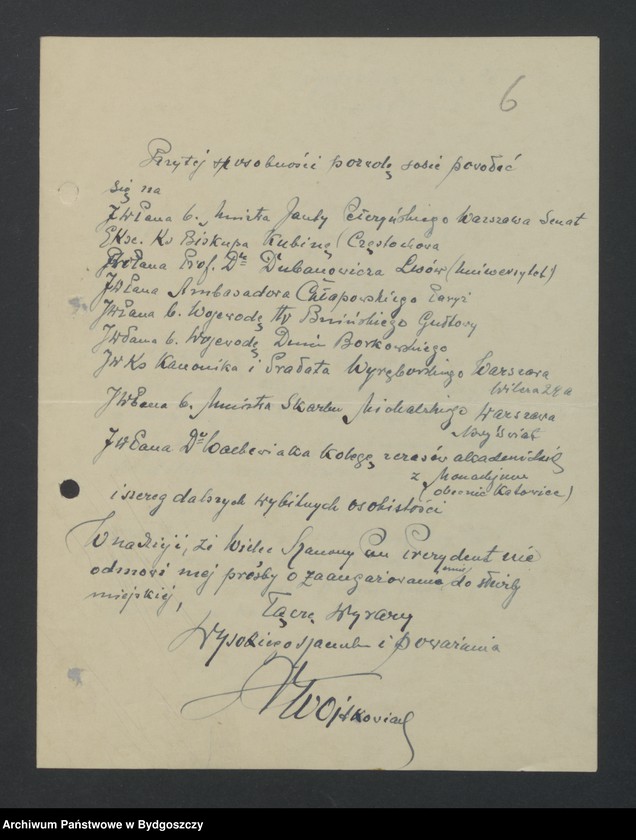 6
Przytej sposobności pozwolę sobie powołać
się na
JWPana b. Ministra Janty Połczyńskiego Warszawa Senat
Eksc. Ks Biskupa Kubinę (Częstochowa
JWPana Prof. Dr Dubanowicza Lwów (Uniwersytet)
JWPana Ambasadora Chłapowskiego Paryż
JWPana b. Wojewodę Hr Bnińskiego Gułtowy
JWPana b. Wojewodę Dunin Borkowskiego
JW Ks Kanonika i Prałata Wyrębowskiego Warszawa
Wilcza 29a
JWPana b. Ministra Skarbu Michalskiego Warszawa
Nowy Świat
JWPana Dr kolegę z czasów akademickich
z Monachjum
(obecnie Katowice)
i szereg dalszych wybitnych osobistości
W nadzieji, że Wielce Szanowny Pan Prezydent nie
odmówi mej prośby o zaangażowanie mnie do służby
miejskiej,
Łączę wyrazy
Wysokiego szacunku i poważania
Wojtkowiak
Archiwum Państwowe w Bydgoszczy